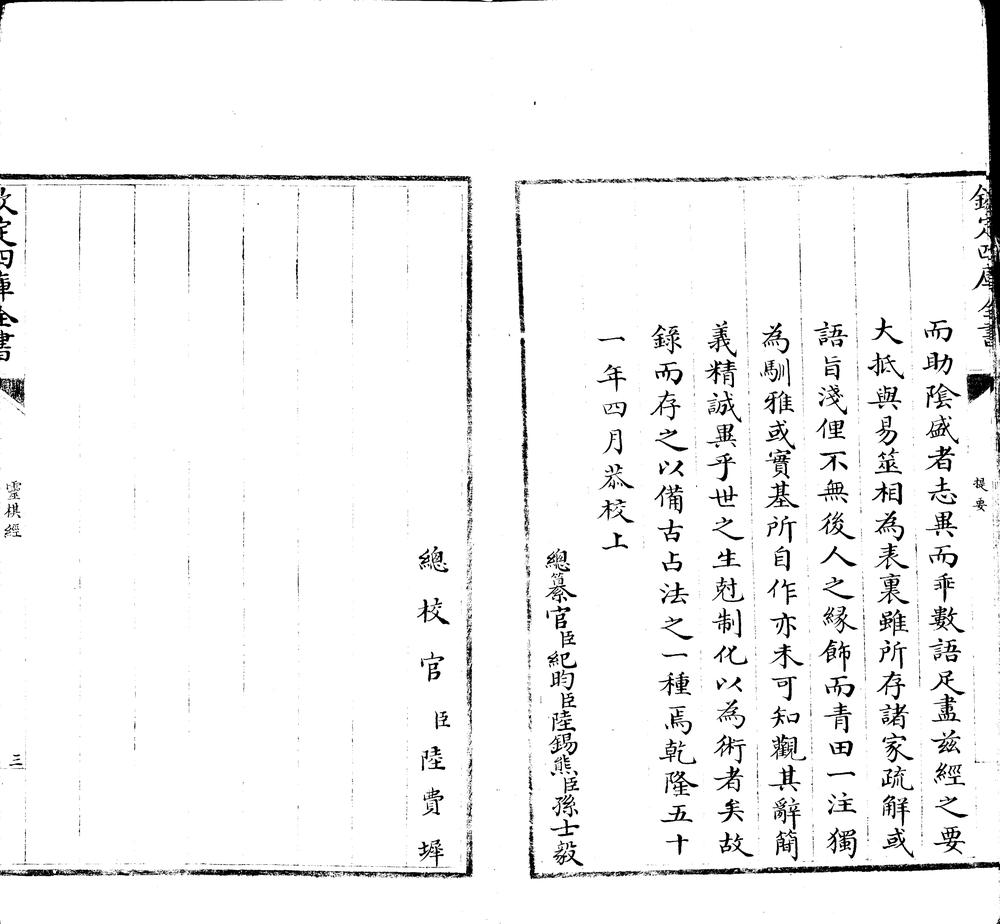 欽定四庫全書
提要
而助陰盛者志異而乖數語足盡茲經之要
大抵與易筮相為表裏雖所存諸家疏解或
語旨淺俚不無後人之緣飾而青田一注獨
為馴雅或實基所自作亦未可知觀其辭簡
義精誠異乎世之生尅制化以為術者矣故
錄而存之以備古占法之一種焉乾隆五十
一年四月恭校上
總纂官臣紀昀臣陸錫熊臣孫士毅
總校官臣陸費墀
欽定四庫全書
靈棋經
三